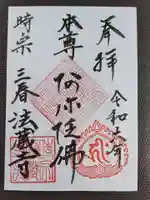 奉拝
令和六年
本尊
阿弥陀佛
時宗
三春 法蔵寺